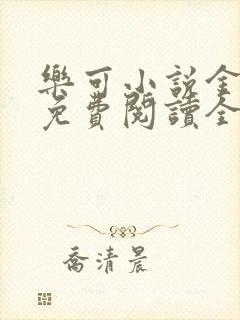 樂可小說全
免費閱讀全
喬清晨